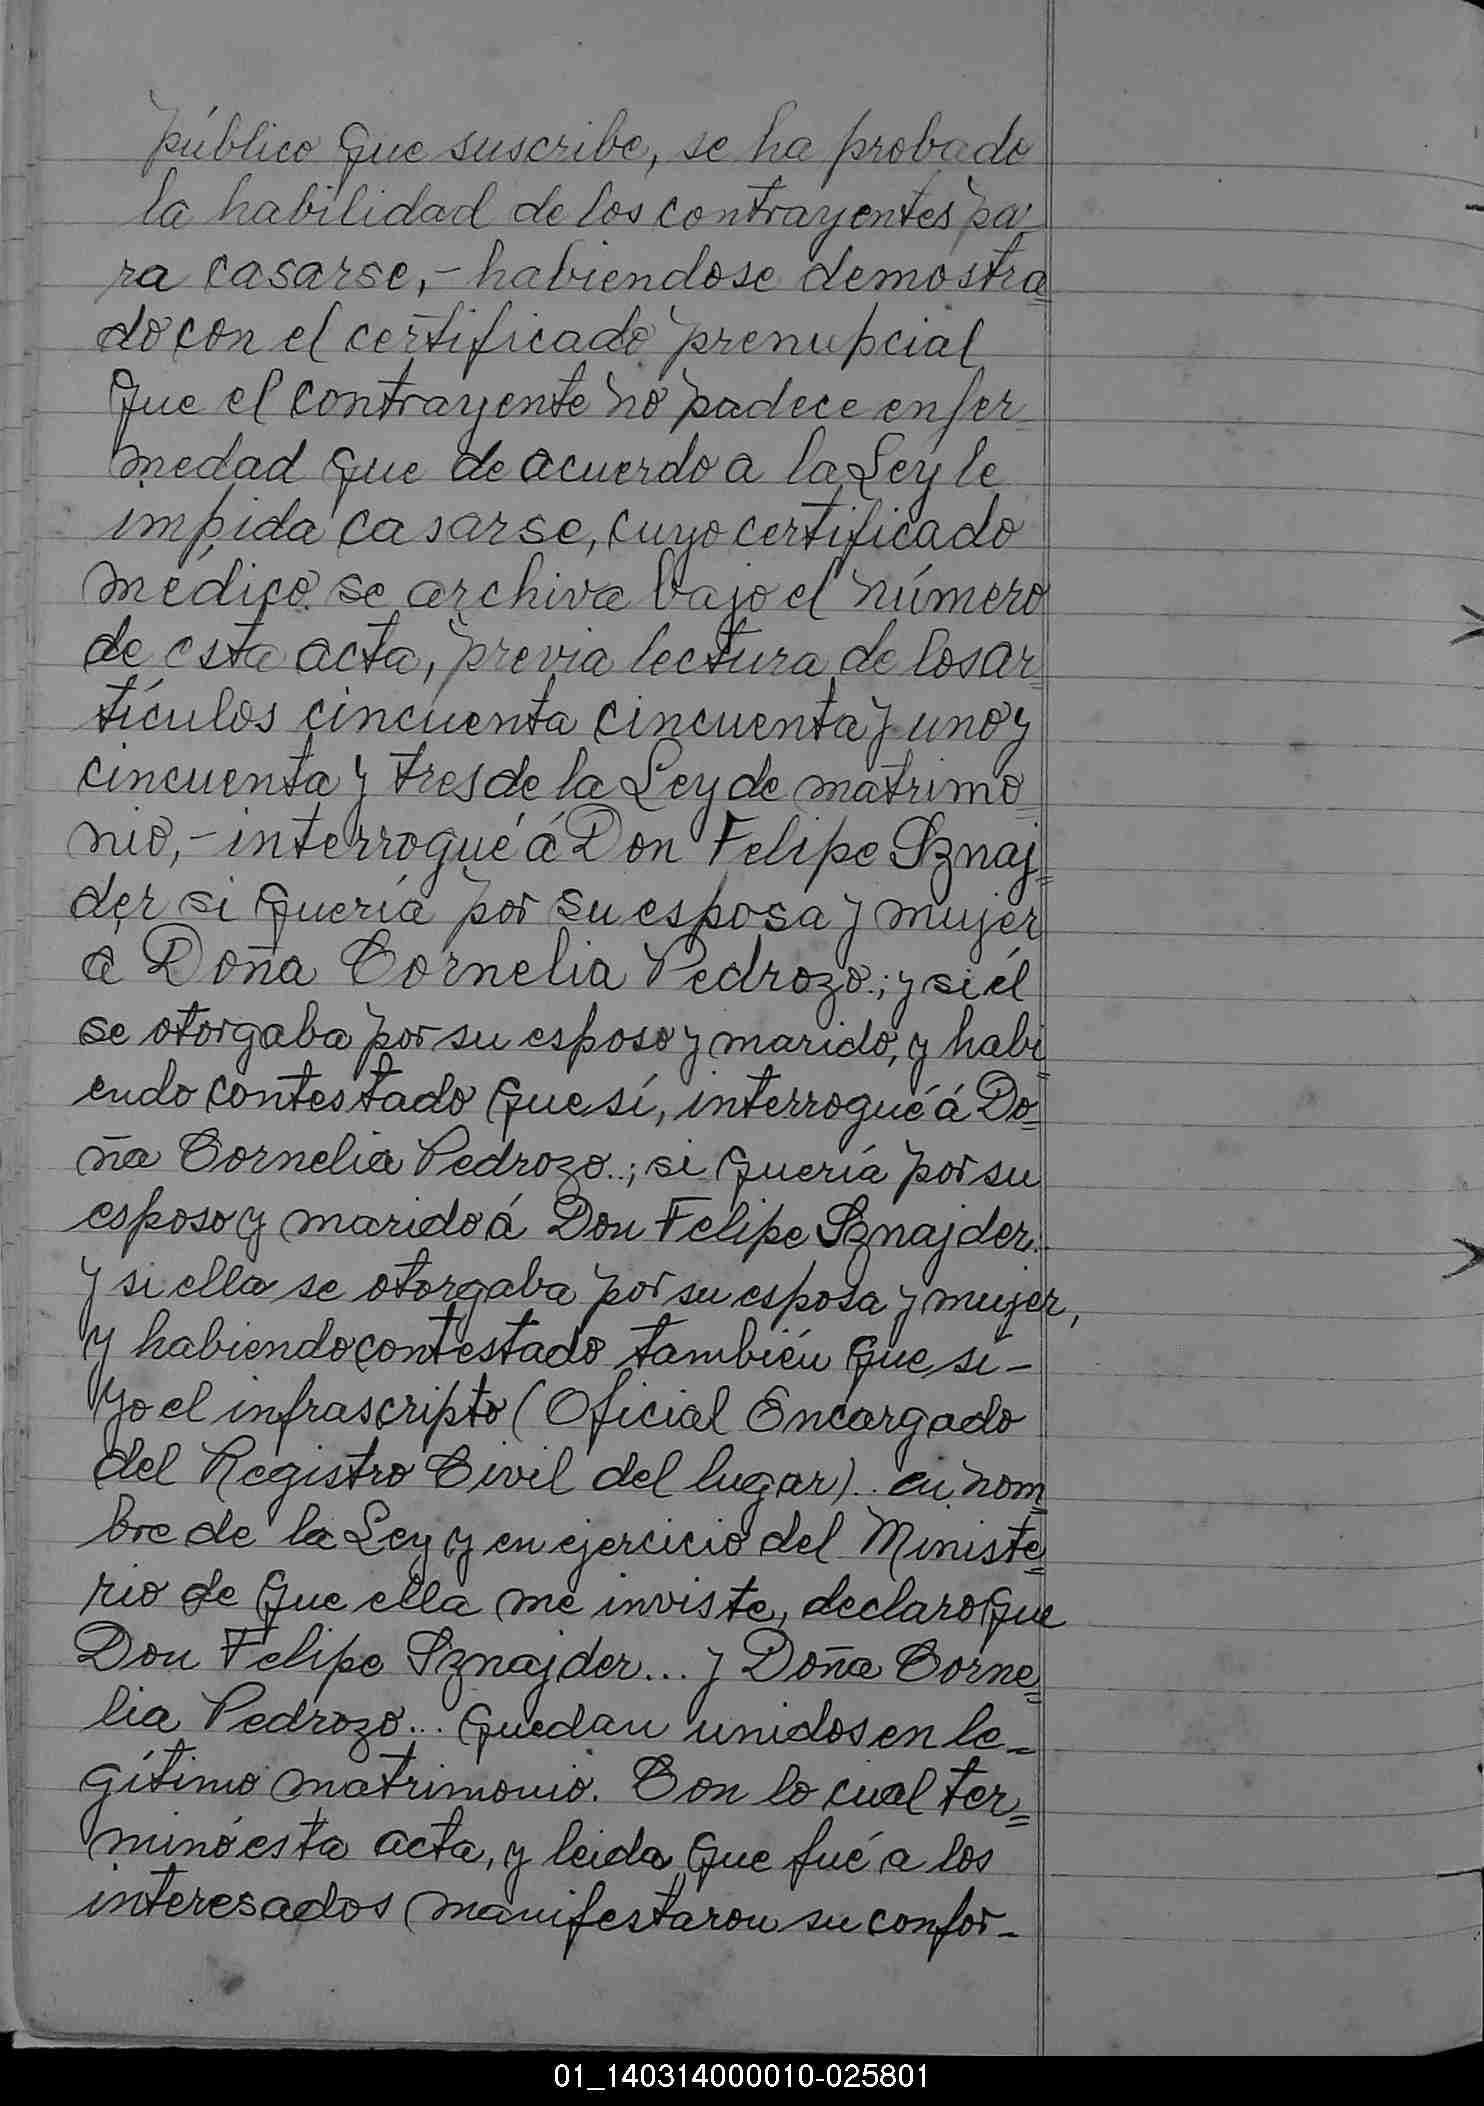 público que suscribe, se ha probado
la habilidad de los contrayentes pa-
ra casarse,- habiendose demostra=
do con el certificado prenupcial
que el contrayente no padece enfer-
medad que de acuerdo a la Ley le
impida casarse, cuyo certificado
médico se archiva bajo el número
de esta acta, previa lectura de los ar-
tículos cincuenta cincuenta y uno y
cincuenta y tres de la Ley de matrimo=
nio,- interrogué á Don Felipe Sznaj=
der si quería por su esposa y mujer
a Doña Cornelia Pedrozo.; y si él
se otorgaba por su esposo y marido, y habi=
endo contestado que sí, interrogué á Do=
ña Cornelia Pedrozo..; si quería por su
esposo y marido á Don Felipe Sznajder..
y si ella se otorgaba por su esposa y mujer,
y habiendo contestado también que si-
yo el infrascripto (Oficial Encargado
del Registro Civil del lugar).. en nom=
bre de la Ley y en ejercicio del Ministe=
rio de que ella me inviste, declaro que
Don Felipe Sznajder... y Doña Corne=
lia Pedrozo... quedan unidos en le-
gítimo matrimonio. Con lo cual ter=
minó esta acta, y leida que fué a los
interesados manifestaron su confor-
01_140314000010-025801